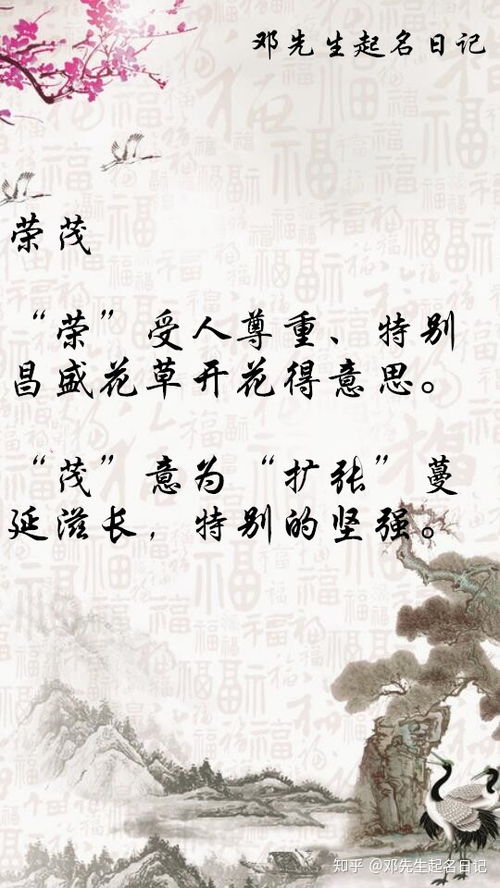 邓先生起名日记
荣茂
“荣”受人尊重、特别
昌盛花草开花得意思。
“茂”意为“扩张”蔓
延滋长，特别的坚强。
知乎 @邓先生起名日记